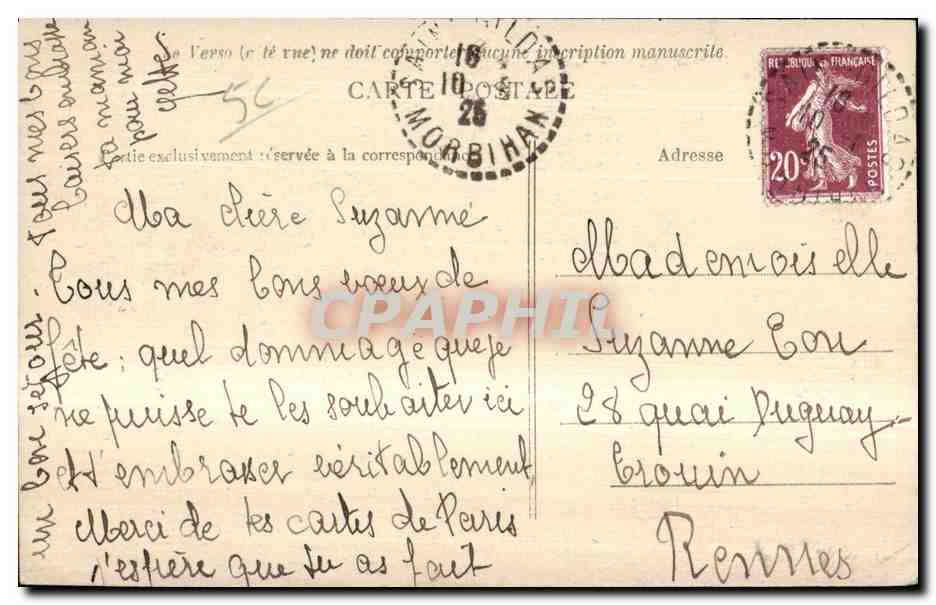 Le Verso (côté vue) ne doit comporter aucune inscription manuscrite.
CARTE POSTALE
Partie exclusivement réservée à la correspondance
Adresse
56
16
10
25
MORBIHAN
REPUBLIQUE FRANÇAISE
20c
POSTES
Ma chère Suzanne
Tous mes bons vœux de
fête ; quel dommage que je
ne puisse te les souhaiter ici
et t'embrasser véritablement
Merci de tes cartes de Paris
j'espère que tu as fait
un bon séjour. Tous mes bons
baisers embrasse
ta maman
pour moi
Mademoiselle
Suzanne Eon
28 quai Duguay-
Trouin
Rennes
CPAPHIL